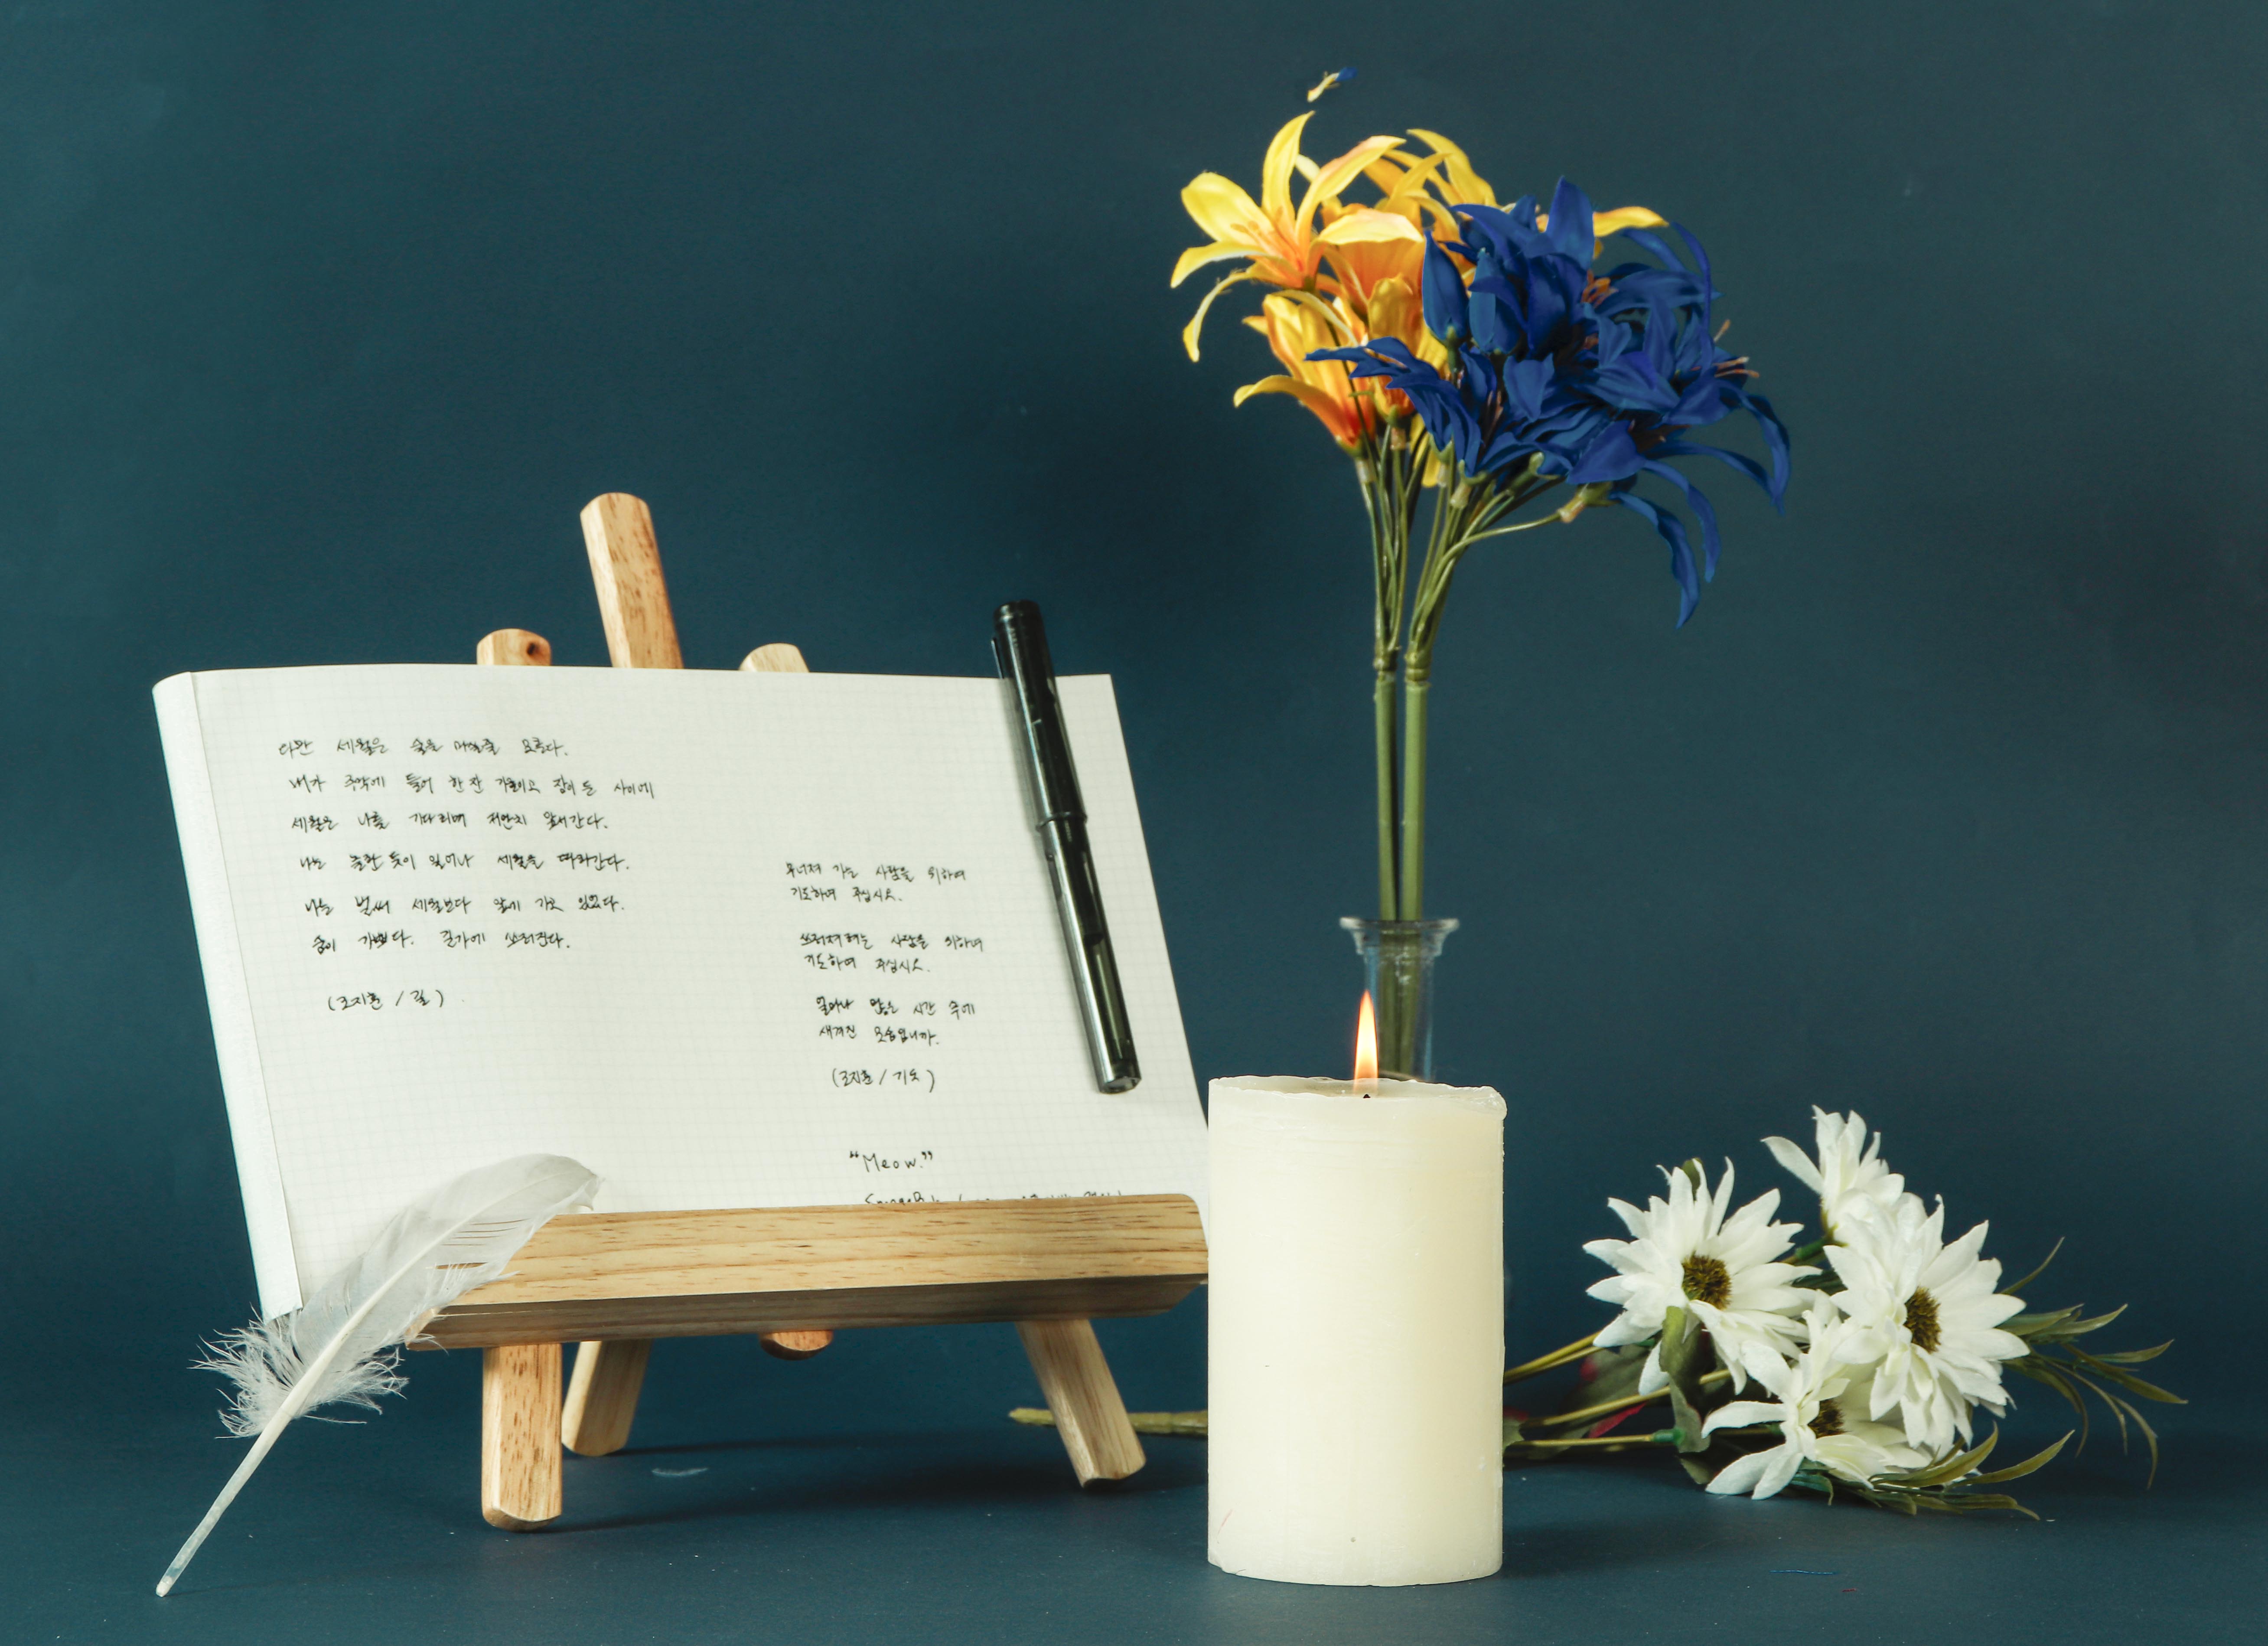 다만 세월은 술을 마실줄 모른다.
내가 주막에 들어 한 잔 기울이고 잠이 든 사이에
세월은 나를 기다리며 저만치 앞서간다.
나는 놀란 듯이 일어나 세월을 따라간다.
나는 벌써 세월보다 앞에 가고 있었다.
숨이 가쁘다. 길가에 쓰러진다.
(조지훈 / 길)
무너져 가는 사람을 위하여
기도하여 주십시오.
쓰러지려는 사람을 위하여
기도하여 주십시오.
얼마나 많은 시간 속에
새겨진 모습입니까.
(조지훈 / 기도)
“Meow.”